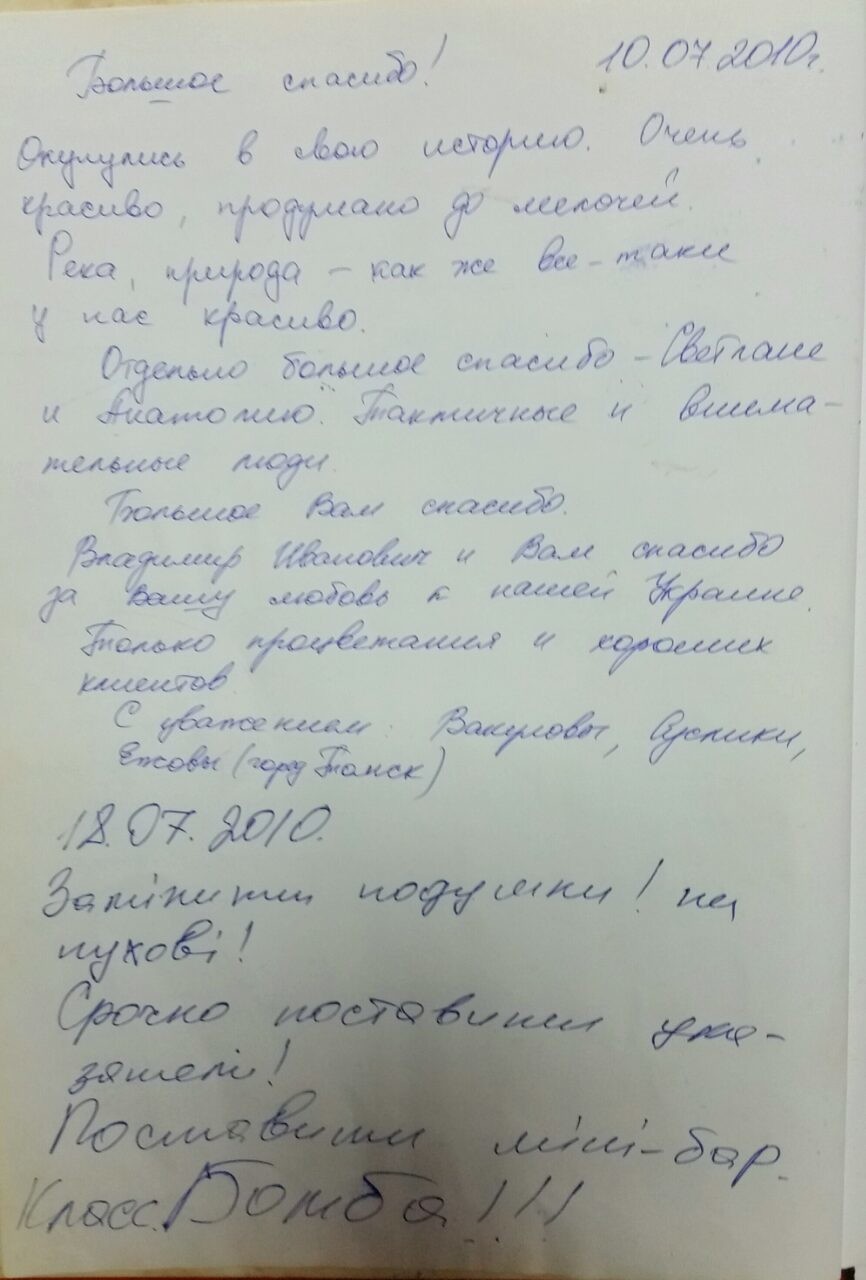 Большое спасибо! 10.07.2010г.
Окунулись в свою историю. Очень
красиво, продумано до мелочей.
Река, природа – как же все-таки
у нас красиво.
Отдельно большое спасибо – Светлане
и Анатолию. Тактичные и внима-
тельные люди.
Большое Вам спасибо.
Владимир Иванович и Вам спасибо
за Вашу любовь к нашей Украине.
Только процветания и хороших
клиентов.
С уважением: Вакуловы,
Ежовы (город Томск)
18.07.2010.
Замінити подушки! на
пухові!
Срочно поставити ука-
зателі!
Поставити міні-бар.
Класс. Бомба!!!